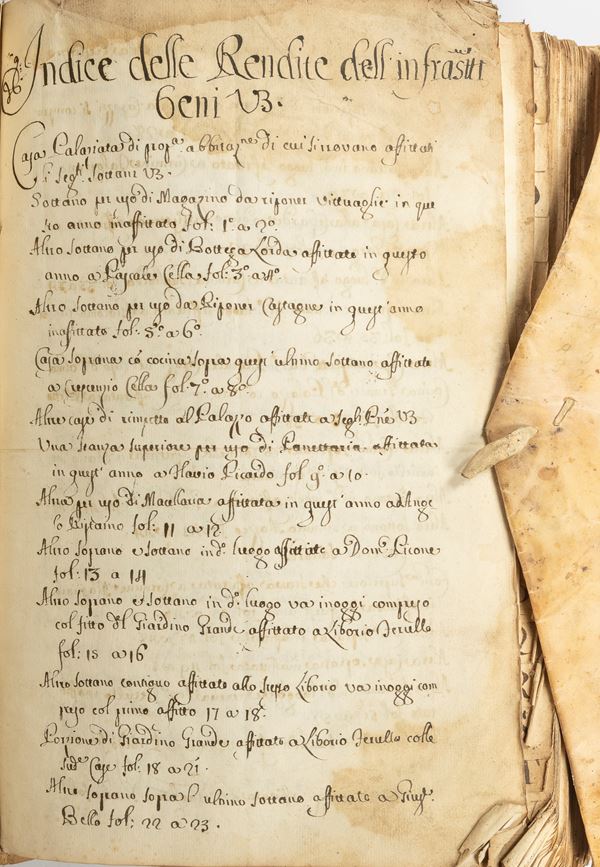 Indice delle Rendite dell'infratti
Beni V3.
Casa Palaziata di prop.a abbitaz.ne di cui si trovano affittati
li segti. sottani V3.
Sottano per uso di Magazino da riponer vittuaglie in que
sto anno inaffittato fol: 1.o a 2.o
Altro sottano per uso di Bottega Lorda affittato in questo
anno a Pascale Cella fol: 3.o a 4.o
Altro sottano per uso da Riponer Castagne in quest'anno
inafittato fol: 5.o a 6.o
Casa soprana có cocina sopra quest'ultimo sottano affittata
a Crescenzio Cella fol: 7.o a 8.o
Altre case di rimpetto al Palazzo affittate a segti. V3
Una stanza superiore per uso di Panettaria affittata
in quest'anno a Flavio Picardo fol 9.o a 10.
Altra per uso di Macellaria affittata in quest'anno ad Ange
lo fol: 11 a 12
Altro soprano e sottano in d.o luogo affittato a Dom.co
fol: 13 a 14
Altro soprano e sottano in d.o luogo va inoggi compreso
col fitto del Giardino Grande affittato a Liborio
fol: 15 a 16
Altro sottano contiguo affittato allo stesso Liborio va inoggi com
preso col primo affitto 17 a 18
Porzione di Giardino Grande affittato a Liborio colle
sud.e Case fol: 18 a 21
Altro soprano sopra l'ultimo sottano affittato a Gius.e
Bello fol: 22 a 23.